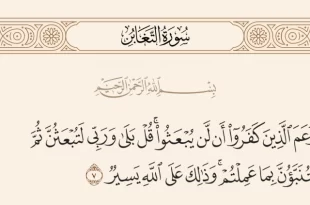 سُورَةُ التَّغَابُنِ
بِسْمِ اللَّهِ الرَّحْمَٰنِ الرَّحِيمِ
زَعَمَ الَّذِينَ كَفَرُوا أَن لَّن يُبْعَثُوا ۚ قُلْ بَلَىٰ وَرَبِّي لَتُبْعَثُنَّ ثُمَّ
لَتُنَبَّؤُنَّ بِمَا عَمِلْتُمْ ۚ وَذَٰلِكَ عَلَى اللَّهِ يَسِيرٌ ٧